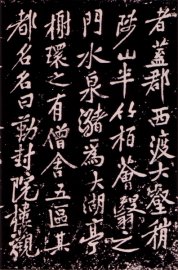 者蓋郡西波大壑稍
陟山半竹柏薈翳之
門水泉瀦為大湖亭
榭環之有僧舍五區其
都名名曰勅封院樓觀